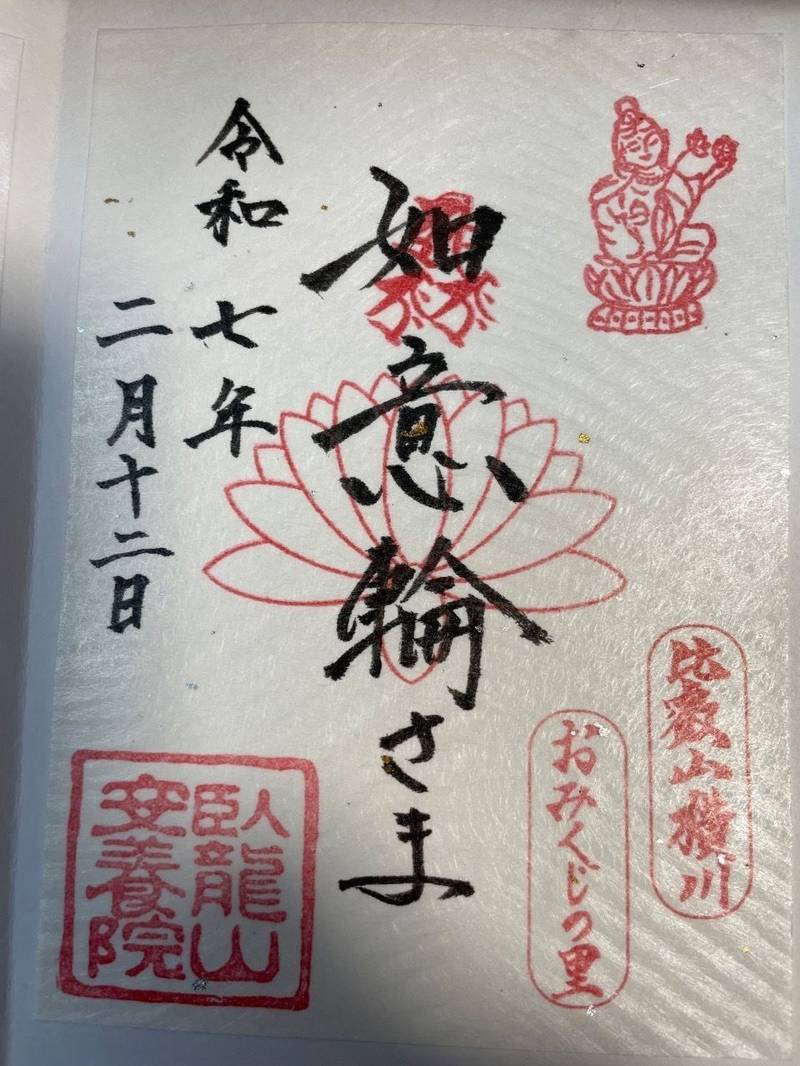 比叡山横川
おみくじの里
如意輪さま
令和七年
二月十二日
臥龍山
安養院